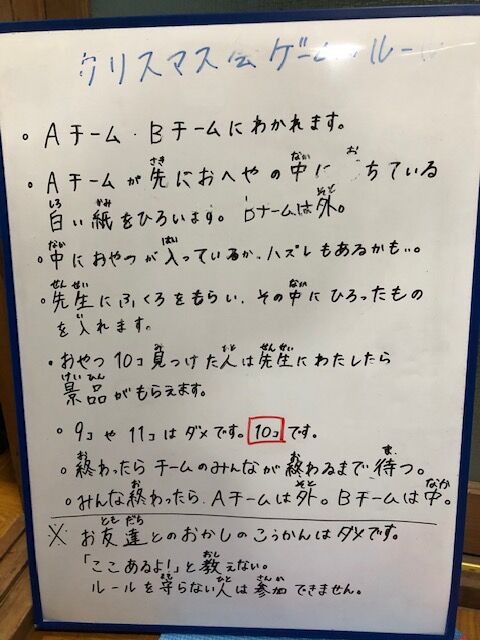 クリスマス会ゲームのルール
。Aチーム・Bチームにわかれます。
。Aチームが先におへやの中に ちている
白い紙をひろいます。Bチームは外。
。中におやつが入っているか、ハズレもあるかも…。
。先生にふくろをもらい、その中にひろったもの
を入れます。
。おやつ10コ見つけた人は先生にわたしたら
景品がもらえます。
。9コや11コはダメです。10コです。
。終わったらチームのみんなが終わるまで待つ。
。みんな終わったら、Aチームは外。Bチームは中。
※ お友達とのおかしのこうかんはダメです。
「ここあるよ!」と教えない。
ルールを守らない人は参加できません。